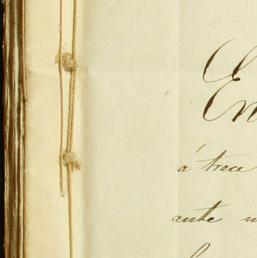 En
á trece
ante